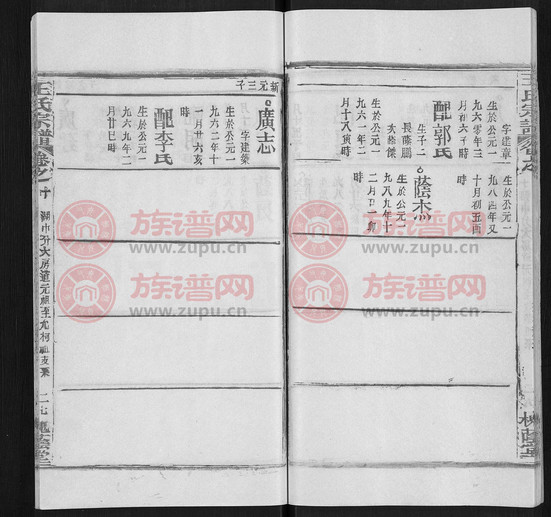 王氏宗譜
字建章
生於公元一
九六零年三
月初六子時
配郭氏
生子二
長蔭鵬
次蔭傑
生於公元一
九六一年二
月十八寅時
生於公元一
九八四年又
十月初五酉
時
蔭杰
生於公元一
九八九年十
二月廿一卯
時
新元三子
廣志
字建榮
生於公元一
九六二年十
一月廿六亥
時
配李氏
生於公元一
九六九年二
月廿日巳時
王氏宗譜
卷之十
二七
槐蔭堂
族谱网
www.zupu.cn
族谱网
www.zupu.cn
族谱网
www.zupu.cn
族谱网
www.zupu.cn